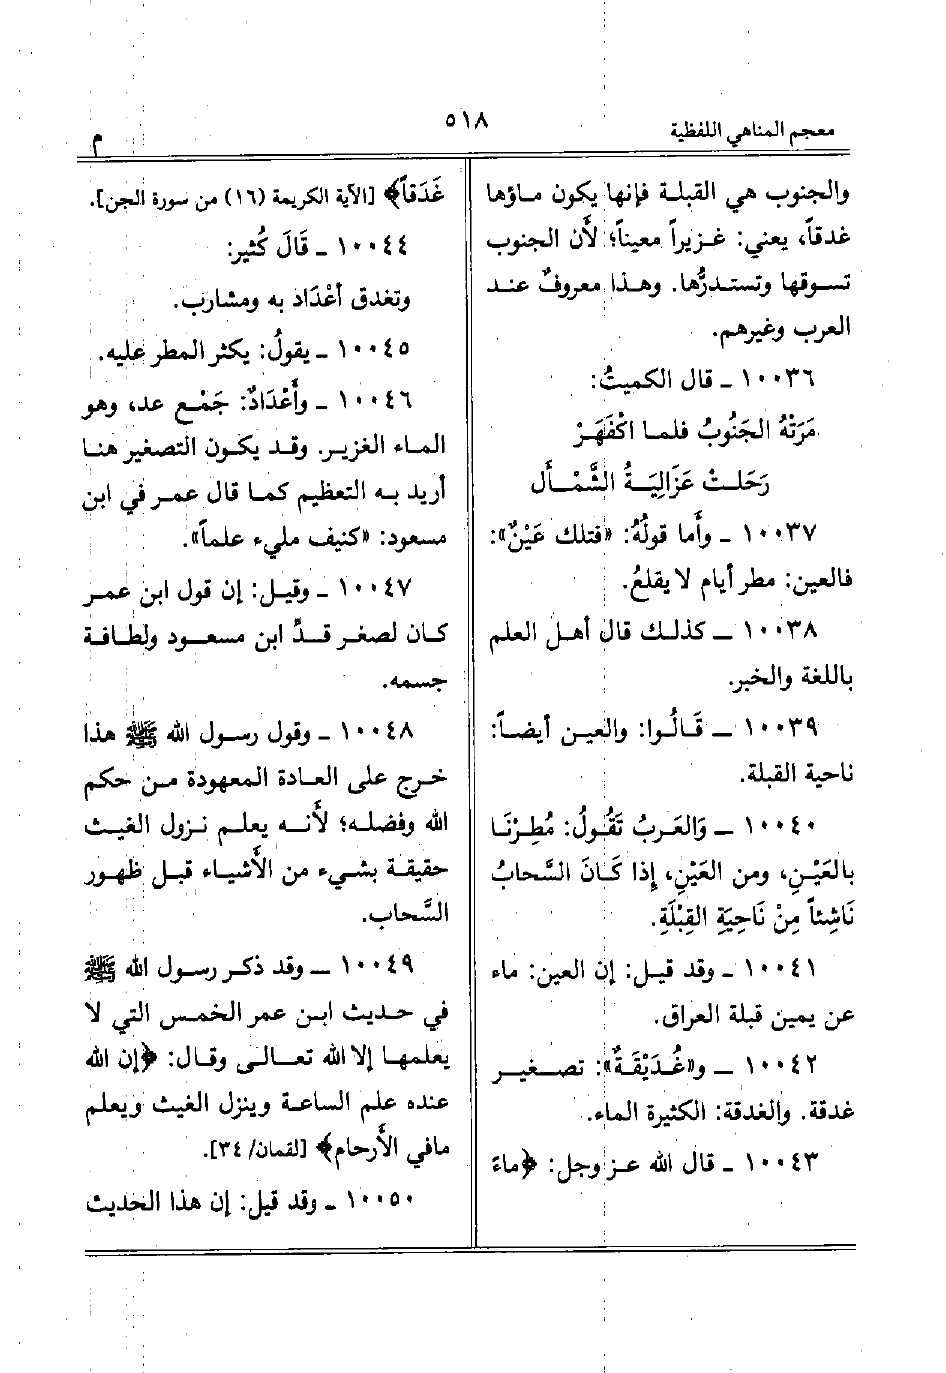 معجم المناهي اللفظية
٥١٨
م
والجنوب هي القبلة فإنها يكون ماؤها
غدقاً، يعني: غزيراً معيناً؛ لأن الجنوب
تسوقها وتستدرُّها. وهذا معروفٌ عند
العرب وغيرهم.
١٠٠٣٦ ـ قال الكميتُ:
مَرَتْهُ الجَنُوبُ فلما اكْفَهَرْ
رَحَلتْ عَزَالِيَةُ الشَّمْأَل
١٠٠٣٧ ـ وأما قولُهُ: «فتلك عَيْنٌ»:
فالعين: مطر أيام لا يقلعُ.
١٠٠٣٨ ـ كذلك قال أهل العلم
باللغة والخبر.
١٠٠٣٩ ـ قَالُوا: والعين أيضاً:
ناحية القبلة.
١٠٠٤٠ ـ وَالعَربُ تَقُولُ: مُطِرْنَا
بالعَيْنِ، ومن العَيْنِ، إِذا كَانَ السَّحابُ
نَاشِئاً مِنْ نَاحِيَةِ القِبْلَةِ.
١٠٠٤١ ـ وقد قيل: إن العين: ماء
عن يمين قبلة العراق.
١٠٠٤٢ ـ و«غُدَيْقَةٌ»: تصغير
غدقة. والغدقة: الكثيرة الماء.
١٠٠٤٣ ـ قال الله عز وجل: ﴿ماءً
غَدَقاً﴾ [الآية الكريمة (١٦) من سورة الجن].
١٠٠٤٤ ـ قَالَ كُثير:
وتغدق أعْدَاد به ومشارب.
١٠٠٤٥ ـ يقولُ: يكثر المطر عليه.
١٠٠٤٦ ـ وأَعْدَادٌ: جَمْع عد، وهو
الماء الغزير. وقد يكون التصغير هنا
أريد به التعظيم كما قال عمر في ابن
مسعود: «كنيف مليء علماً».
١٠٠٤٧ ـ وقيل: إن قول ابن عمر
كان لصغر قدِّ ابن مسعود ولطافة
جسمه.
١٠٠٤٨ ـ وقول رسول الله ﷺ هذا
خرج على العادة المعهودة من حكم
الله وفضله؛ لأنه يعلم نزول الغيث
حقيقة بشيء من الأشياء قبل ظهور
السَّحاب.
١٠٠٤٩ ـ وقد ذكر رسول الله ﷺ
في حديث ابن عمر الخمس التي لا
يعلمها إلا الله تعالى وقال: ﴿إن الله
عنده علم الساعة وينزل الغيث ويعلم
مافي الأرحام﴾ [لقمان/ ٣٤].
١٠٠٥٠ ـ وقد قيل: إن هذا الحديث